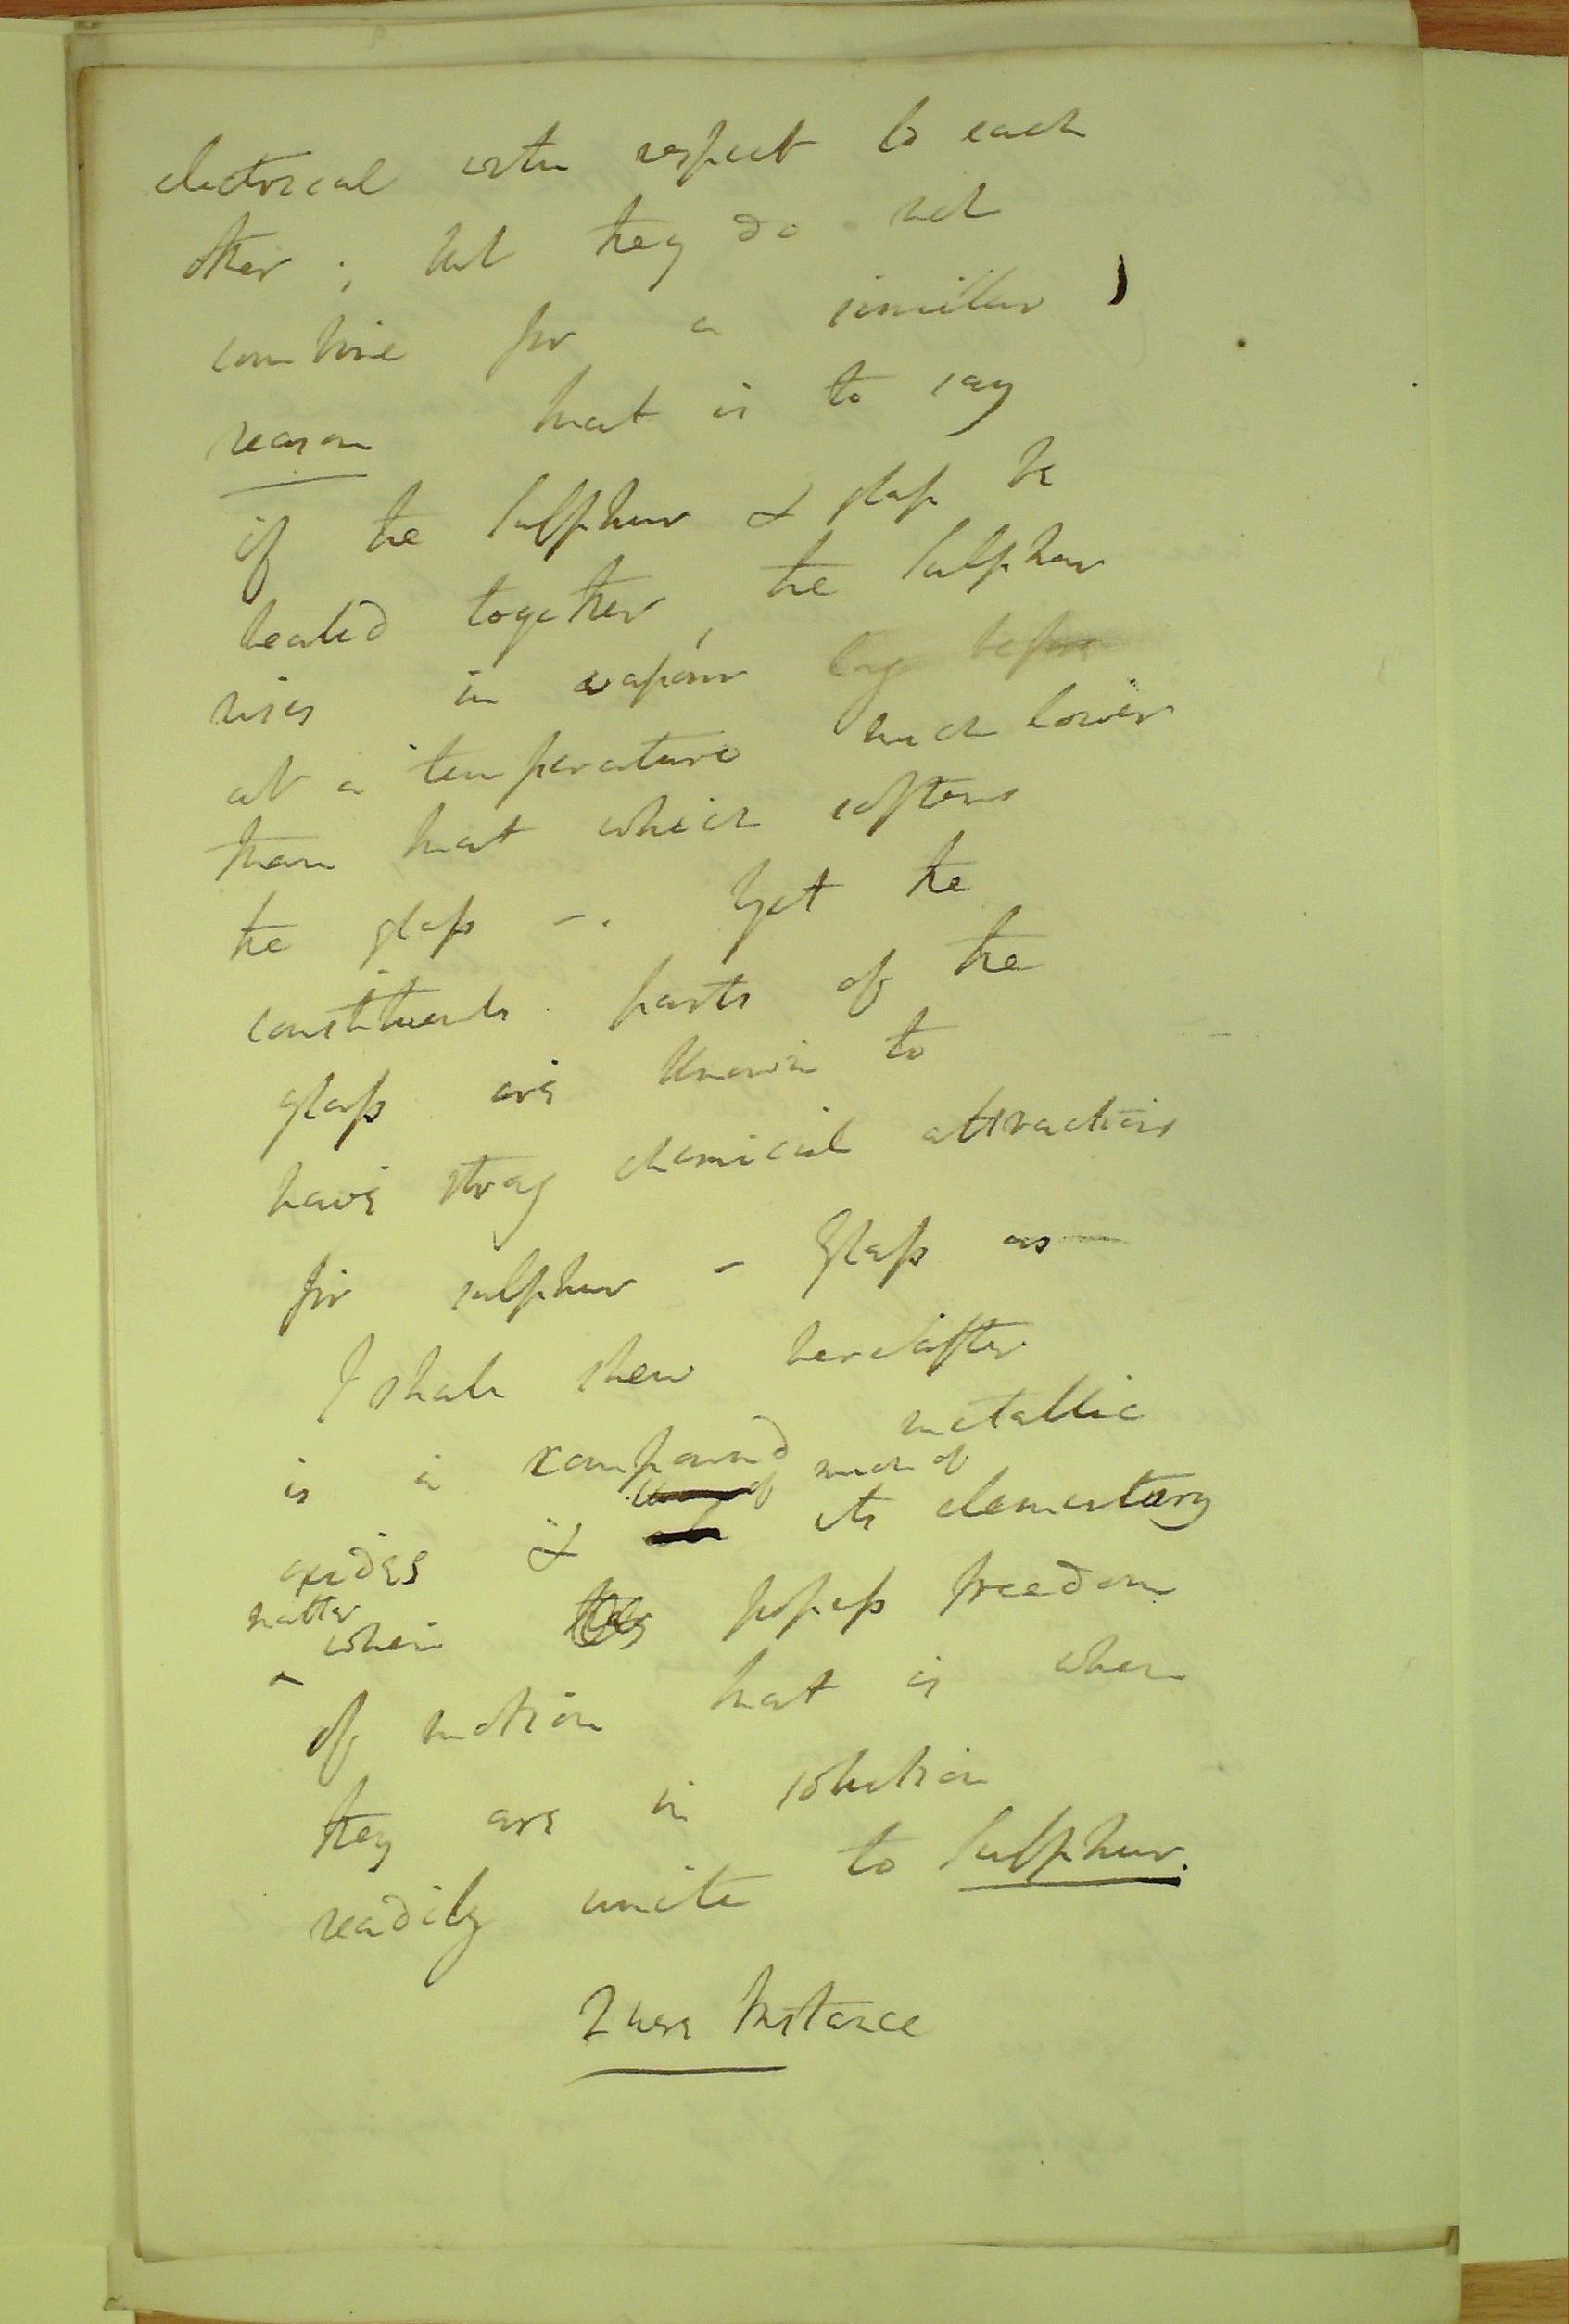 electrical with respect to each
other ; but they do not
combine for a similar
reason that is to say
if the Sulphur & glass be
heated together, the Sulphur
rises in vapour long before
at a temperature much lower
than that which softens
the glass –. Yet the
constituents parts of the
glass are known to
have strong chemical attractions
for sulphur – Glass as
I shall shew hereafter
is a compound metallic
of much of
oxides & all its elementary
matter
when they possess freedom
of motion that is when
they are in solution
readily unite to Sulphur.
Instance